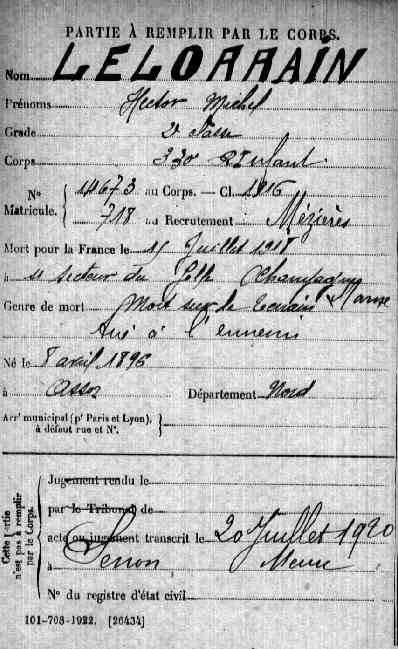 PARTIE À REMPLIR PAR LE CORPS.
Nom LELORRAIN
Prénoms Hector Michel
Grade 2e
Corps 330 d'Infant.
N° Matricule. 14673 au Corps. — Cl. 1916
718 au Recrutement Mézières
Mort pour la France le 15 Juillet 1918
à secteur du Golfe Champagne Marne
Genre de mort Mort sur le terrain
tué à l'ennemi
Né le 8 avril 1896
à Département Nord
Arrt municipal (pr Paris et Lyon), à défaut rue et N°.
Cette partie n'est pas à remplir par le Corps.
Jugement rendu le
par le Tribunal de
acte ou jugement transcrit le 20 Juillet 1920
à Senon Meuse
N° du registre d'état civil
101-708-1922. [26434]